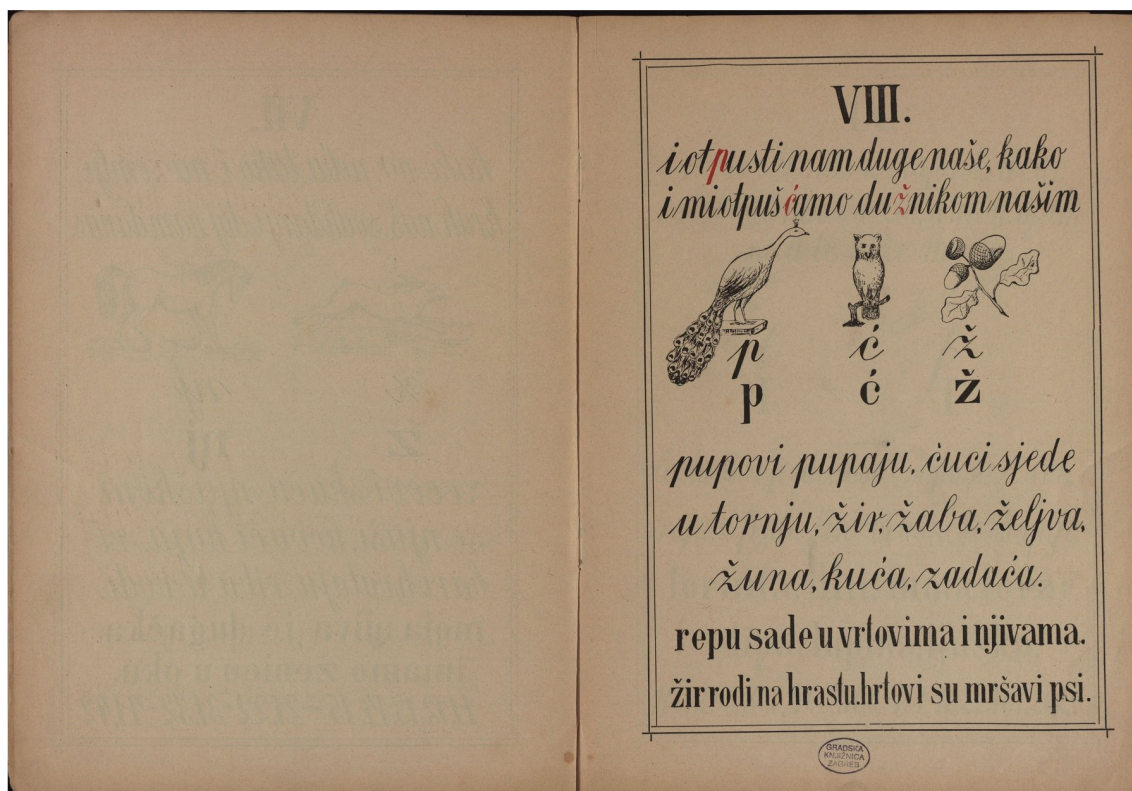 VIII.
i otpusti nam duge naše, kako
i mi otpušćamo dužnikom našim
p ć ž
p ć ž
pupovi pupaju, ćuci sjede
u tornju, žir, žaba, željva,
žuna, kuća, zadaća.
repu sade u vrtovima i njivama.
žir rodi na hrastu. hrtovi su mršavi psi.
GRADSKA
KNJIŽNICA
ZAGREB